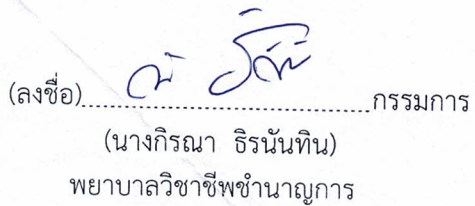 (ลงชื่อ)........................................กรรมการ
(นางกิรณา ธิรนันทิน)
พยาบาลวิชาชีพชำนาญการ